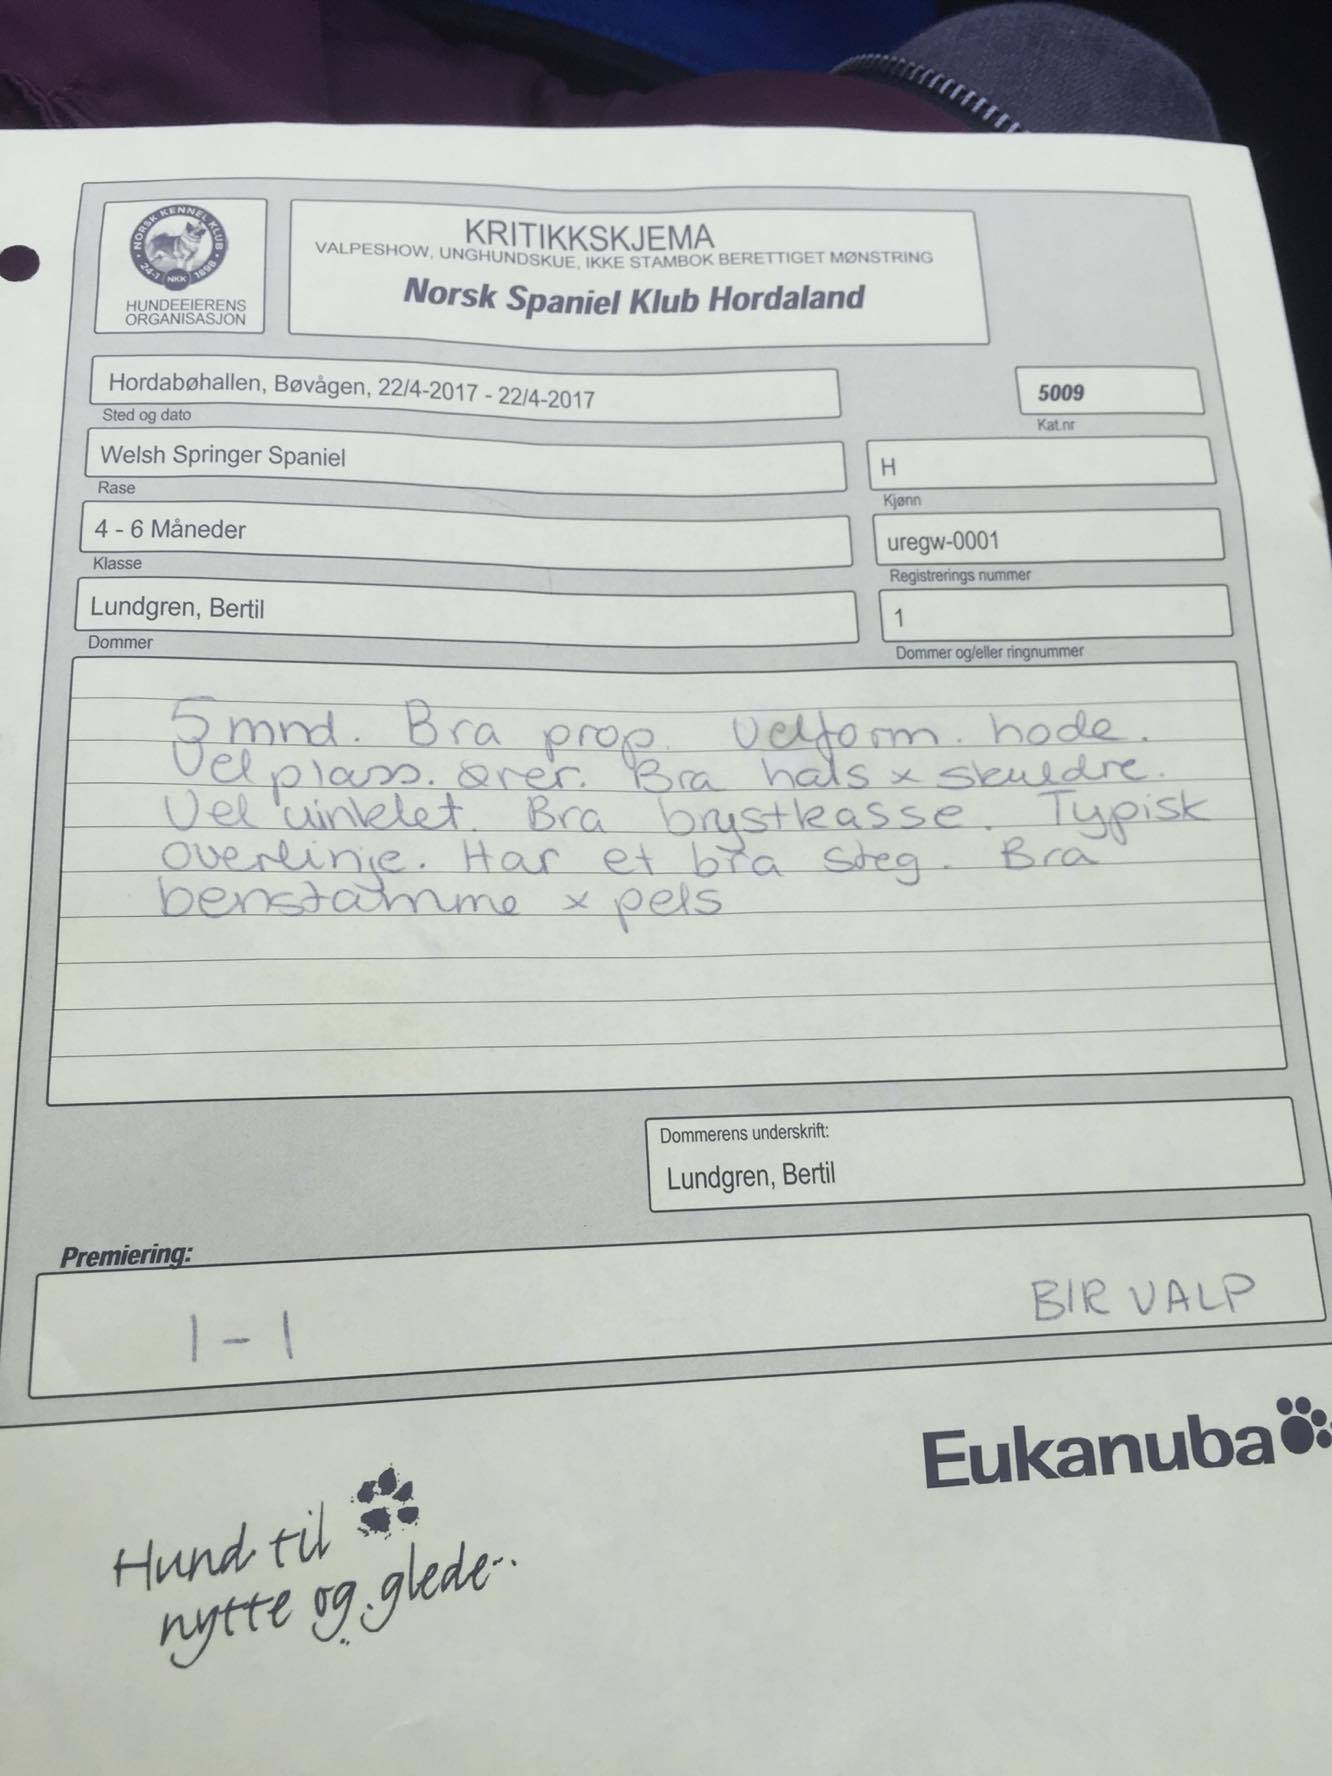 NORSK KENNEL KLUB
24-1 NKK 1898
HUNDEEIERENS
ORGANISASJON
KRITIKKSKJEMA
VALPESHOW, UNGHUNDSKUE, IKKE STAMBOK BERETTIGET MØNSTRING
Norsk Spaniel Klub Hordaland
Hordabøhallen, Bøvågen, 22/4-2017 - 22/4-2017
Sted og dato
5009
Kat.nr
Welsh Springer Spaniel
Rase
H
Kjønn
4 - 6 Måneder
Klasse
uregw-0001
Registrerings nummer
Lundgren, Bertil
Dommer
1
Dommer og/eller ringnummer
5 mnd. Bra prop. Velform. hode.
Vel plass. ører. Bra hals x skuldre.
Vel vinklet. Bra brystkasse. Typisk
overlinje. Har et bra steg. Bra
benstamme x pels
Dommerens underskrift:
Lundgren, Bertil
Premiering:
1 - 1
BIR VALP
Eukanuba
Hund til
nytte og glede...